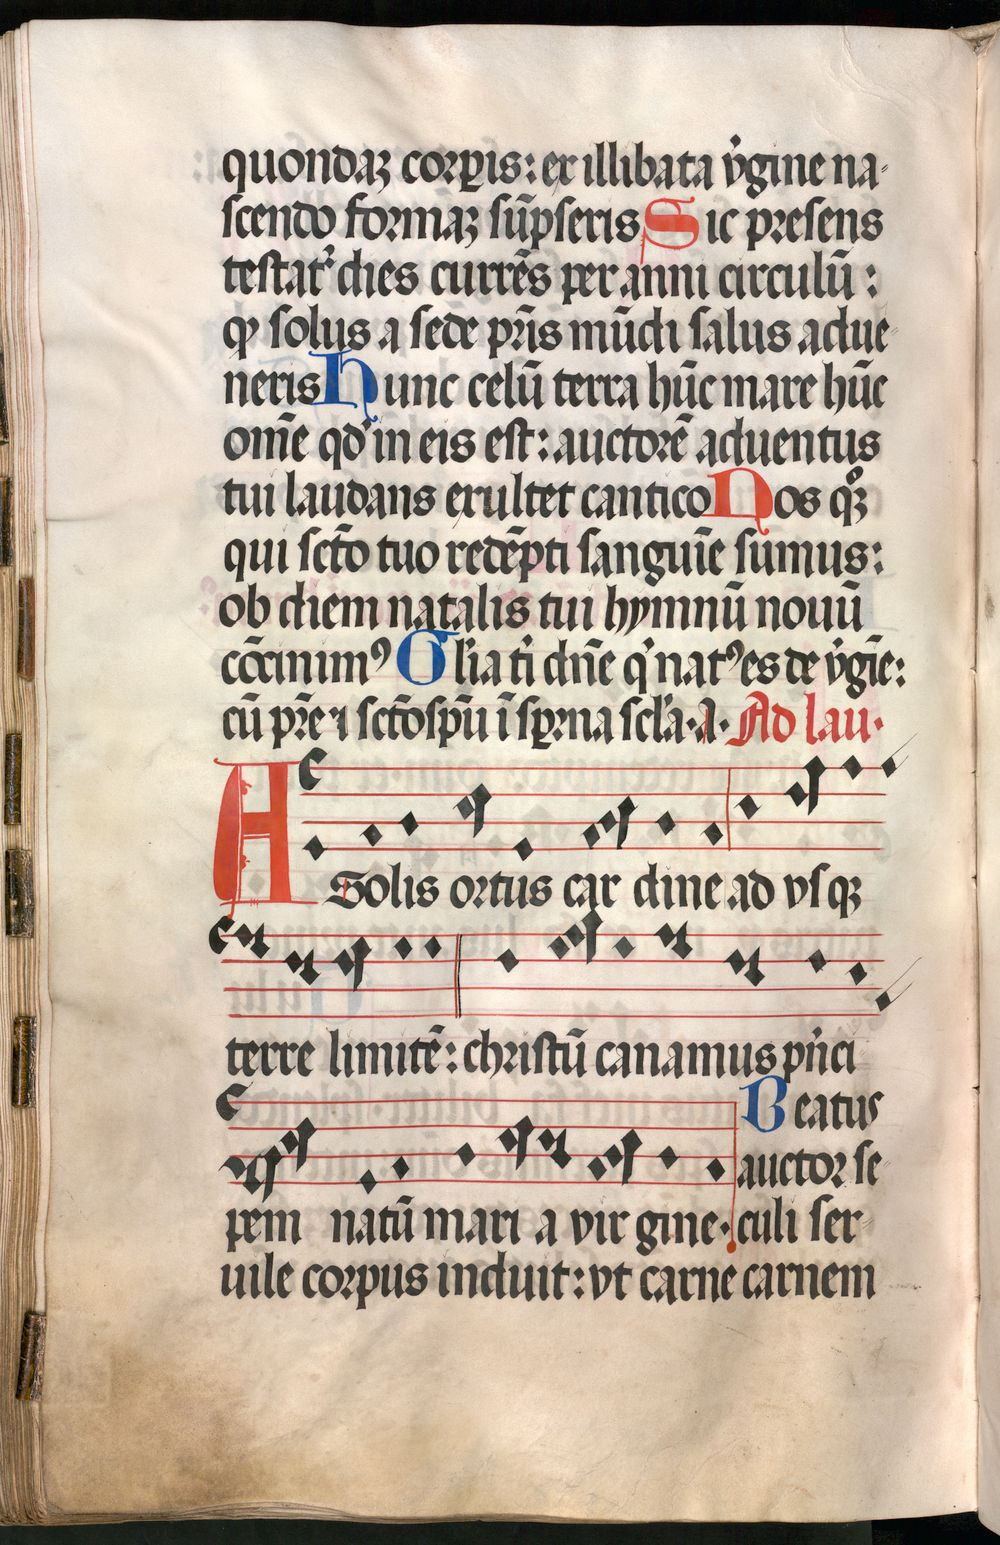 quondaꝫ corꝑis: ex illibata v̾gine na-
scendo formaꝫ sūpseris Sic presens
testat᷑ dies currēs per anni circulū:
ꝙ solus a sede p̄ris mūdi salus adue-
neris Hunc celū terra hūc mare hūc
om̄e qd̾ in eis est: auctorē aduentus
tui laudans exultet cantico Nos qͦꝫ
qui sc̄to tuo redēpti sanguīe sumus:
ob diem natalis tui hymnū nouū
cōcinimꝰ Gl̾ia ti̾ dn̄e q̾ natꝰ es de v̾gīe:
cū p̄re ⁊ sc̄to sp̄u ī sp̄rna scl̾a. a. Ad lau.
A Solis ortus car dine ad vsqꝫ
terre limitē: christū canamus pn̾ci
Beatus
auctor se-
pem natū mari a vir gine. culi ser-
uile corpus induit: vt carne carnem